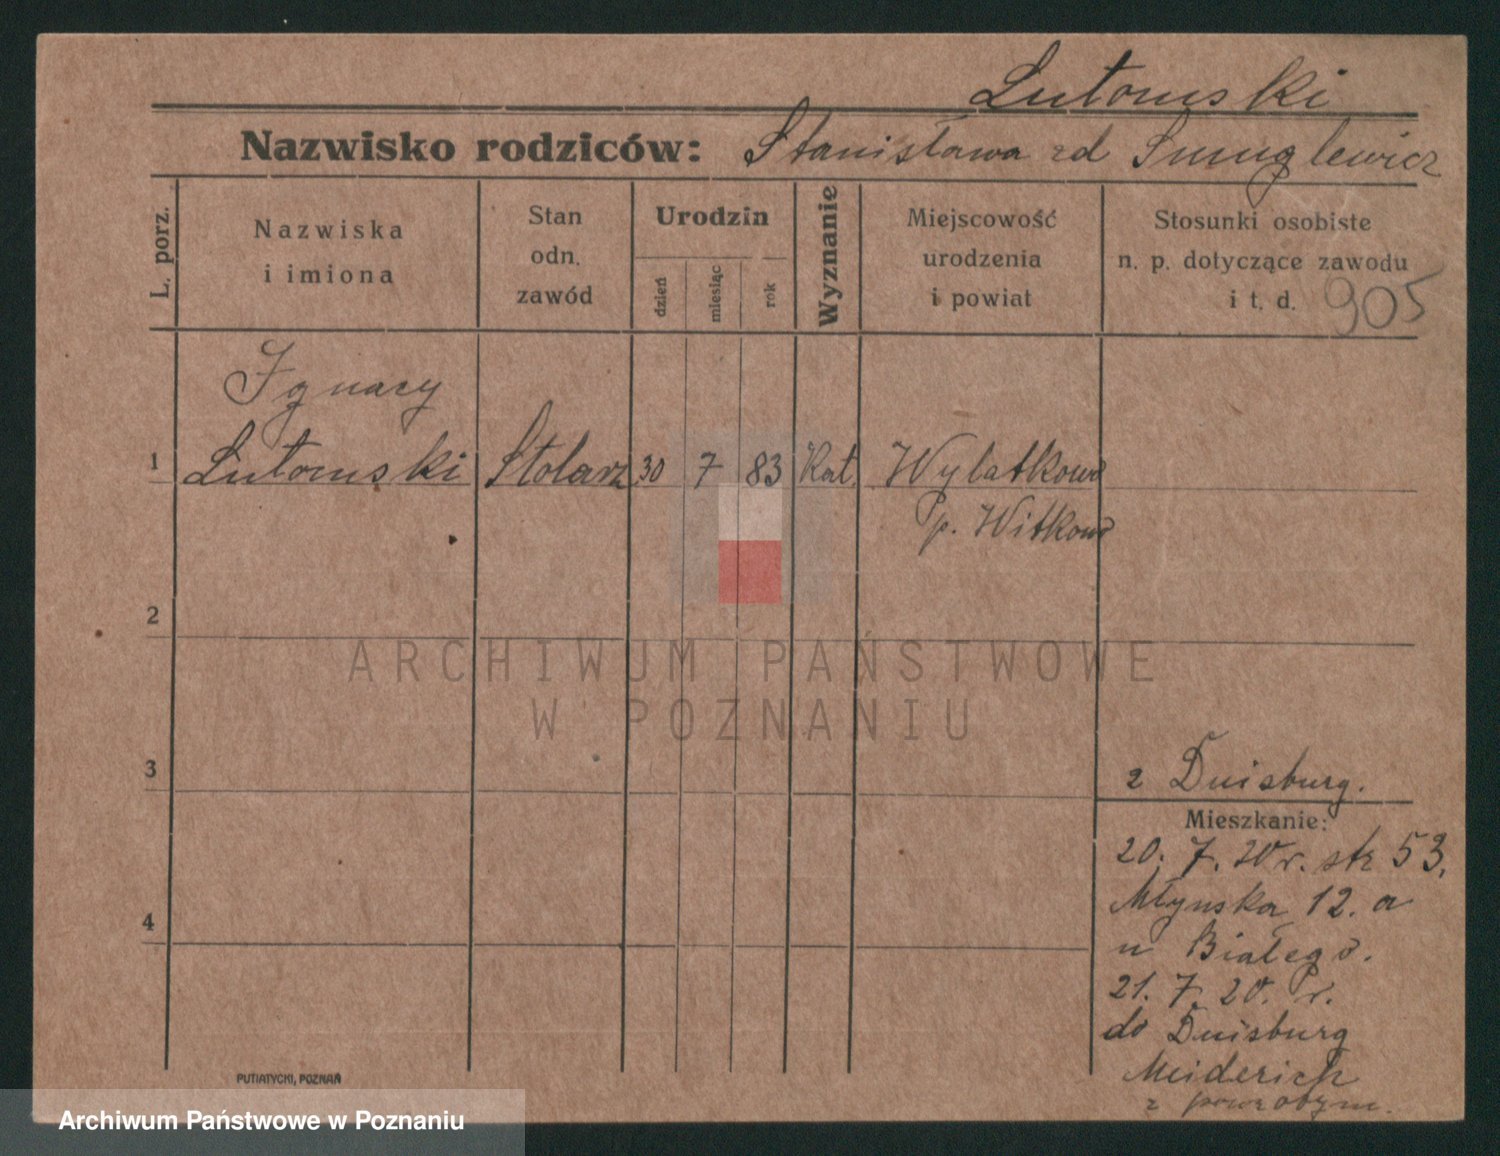 Lutomski
Nazwisko rodziców: Stanisława zd Smuglewicz
L. porz.
Nazwiska
i imiona
Stan
odn.
zawód
Urodzin
dzień
miesiąc
rok
Wyznanie
Miejscowość
urodzenia
i powiat
Stosunki osobiste
n. p. dotyczące zawodu
i t. d. 905
Ignacy
1 Lutomski Stolarz 30 7 83 Kat. Wylatkowo
p. Witkowo
2
ARCHIWUM PAŃSTWOWE
W POZNANIU
3
z Duisburg.
Mieszkanie:
20. 7. 20 r. str 53.
Młynska 12. a
u Białego.
4
21. 7. 20. r.
do Duisburg
Meiderich
z
PUTIATYCKI, POZNAŃ
Archiwum Państwowe w Poznaniu